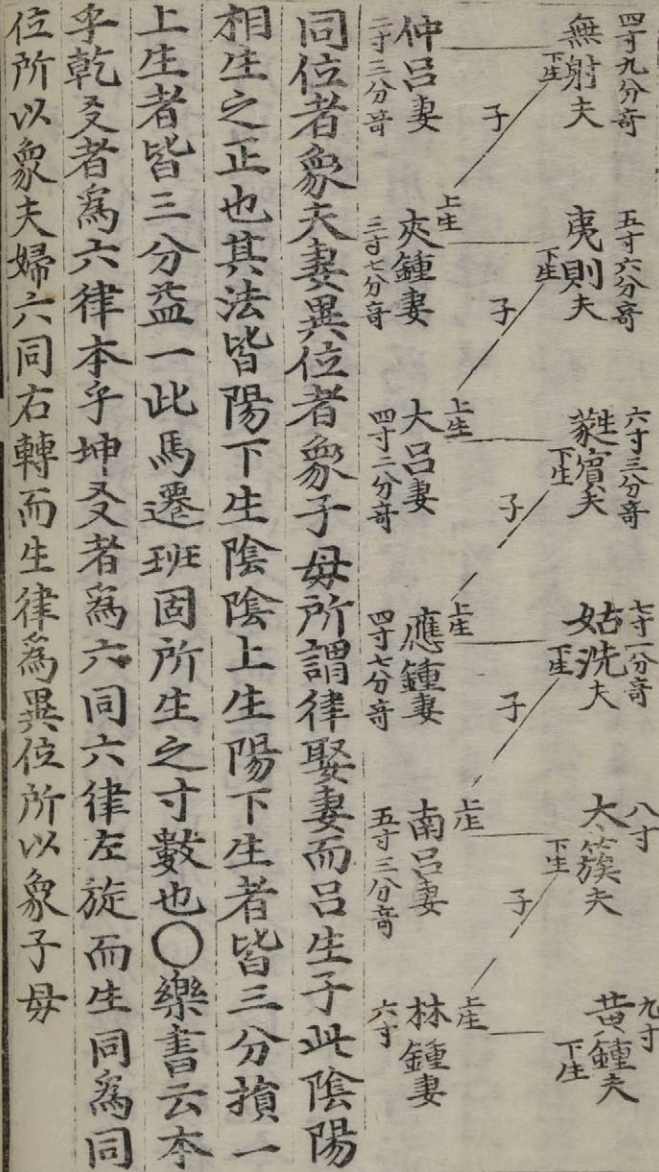 四寸九分奇
無射夫
下生
五寸六分奇
夷則夫
下生
六寸三分奇
蕤賓夫
下生
七寸一分奇
姑洗夫
下生
八寸
大簇夫
下生
九寸
黃鍾夫
下生
子
子
子
子
子
仲呂妻
三寸三分奇
上生
夾鍾妻
三寸七分奇
上生
大呂妻
四寸二分奇
上生
應鍾妻
四寸七分奇
上生
南呂妻
五寸三分奇
上生
林鍾妻
六寸
同位者象夫妻異位者象子母所謂律娶妻而呂生子此陰陽
相生之正也其法皆陽下生陰陰上生陽下生者皆三分損一
上生者皆三分益一此馬遷班固所生之寸數也○樂書云本
乎乾爻者爲六律本乎坤爻者爲六同六律左旋而生同爲同
位所以象夫婦六同右轉而生律爲異位所以象子母